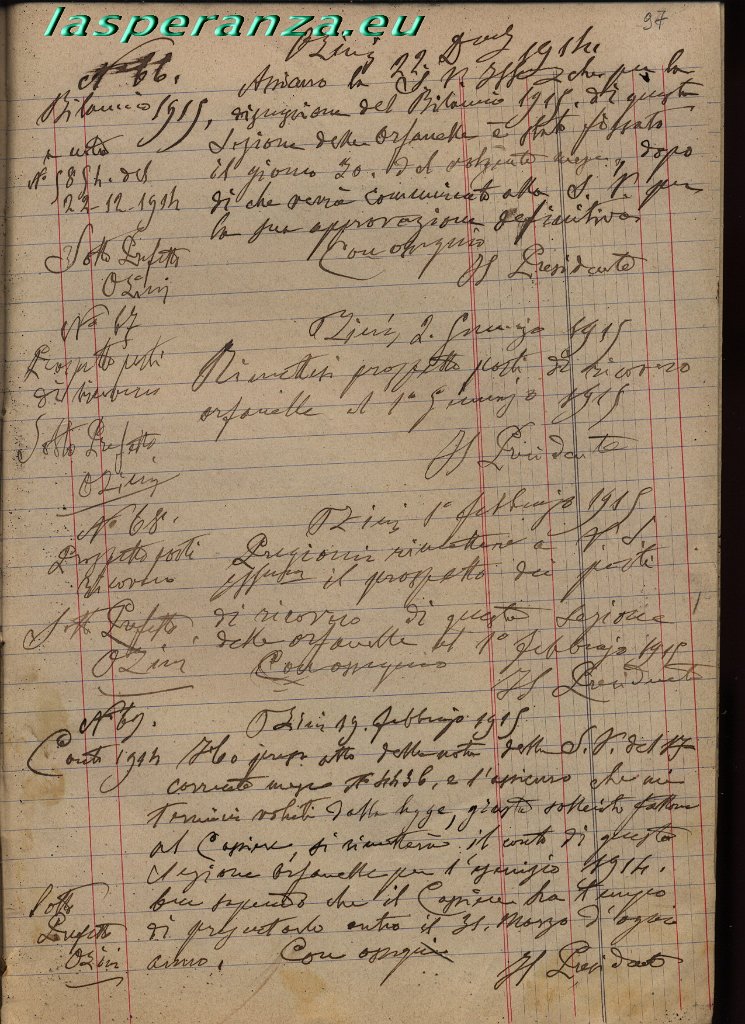 lasperanza.eu
97
N° 66.
Ozieri 22 Dbre 1914.
Bilancio 1915,
nota
N° 5854. del
22-12-1914
Sotto Prefetto
Ozieri
la S. V. Ill che per la
del Bilancio 1915. di questa
Sezione delle Orfanelle è stato fissato
il giorno 30. del volgente mese, dopo
di che verrà comunicato alla S. V. per
la sua approvazione definitiva.
Con ossequio
Il Presidente
N° 67
Prospetto posti
di ricovero
Sotto Prefetto
Ozieri
Ozieri, 2. Gennajo 1915
Rimettesi prospetto posti di ricovero
orfanelle al 1° Gennajo 1915
Il Presidente
N° 68.
Prospetto posti
ricovero
Sotto Prefetto
Ozieri
Ozieri 1° febbrajo 1915
Pregiomi rimettere a V. S.
il prospetto dei posti
di ricovero di questa Sezione
delle orfanelle al 1° febbrajo 1915
Con ossequio
Il Presidente
N° 69.
Conto 1914
Sotto
Prefetto
Ozieri
Ozieri 19. febbrajo 1915
Ho preso atto della nota della S. V. del 17
corrente mese N° 4436. e l'assicuro che nei
termini voluti dalla legge, giusta sollecito fattone
al Cassiere, si rimetterà il conto di questa
Sezione Orfanelle per l'esercizio 1914.
ben sapendo che il Cassiere ha tempo
di presentarlo entro il 31. Marzo d'ogni
anno. Con ossequio
Il Presidente